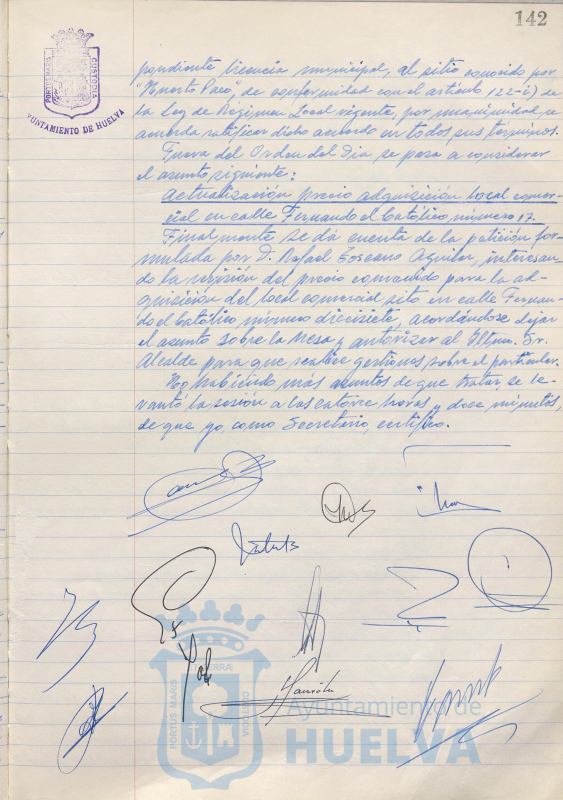 142
PORTUS MARIS CUSTODIA
AYUNTAMIENTO DE HUELVA
pondiente licencia municipal, al sitio conocido por
"Huerto Paco", de conformidad con el artículo 122-i) de
la Ley de Régimen Local vigente, por unanimidad, se
acuerda ratificar dicho acuerdo en todos sus términos.
Fuera del Orden del Dia se pasa a considerar
el asunto siguiente:
Actualización precio adquisición local comer-
cial en calle Fernando el Católico, número 17.
Finalmente se dá cuenta de la petición for-
mulada por D. Rafael Toscano Aguilar, interesan-
do la revisión del precio convenido para la ad-
quisición del local comercial sito en calle Fernan-
do el Católico número diecisiete, acordándose dejar
el asunto sobre la Mesa y autorizar al Iltmo. Sr.
Alcalde para que realice gestiones sobre el particular.
No habiendo más asuntos de que tratar, se le-
vantó la sesión a las catorce horas y doce minutos,
de que yo, como Secretario, certifico.
PORTUS MARIS TERRAE CUSTODIA
Ayuntamiento de
HUELVA